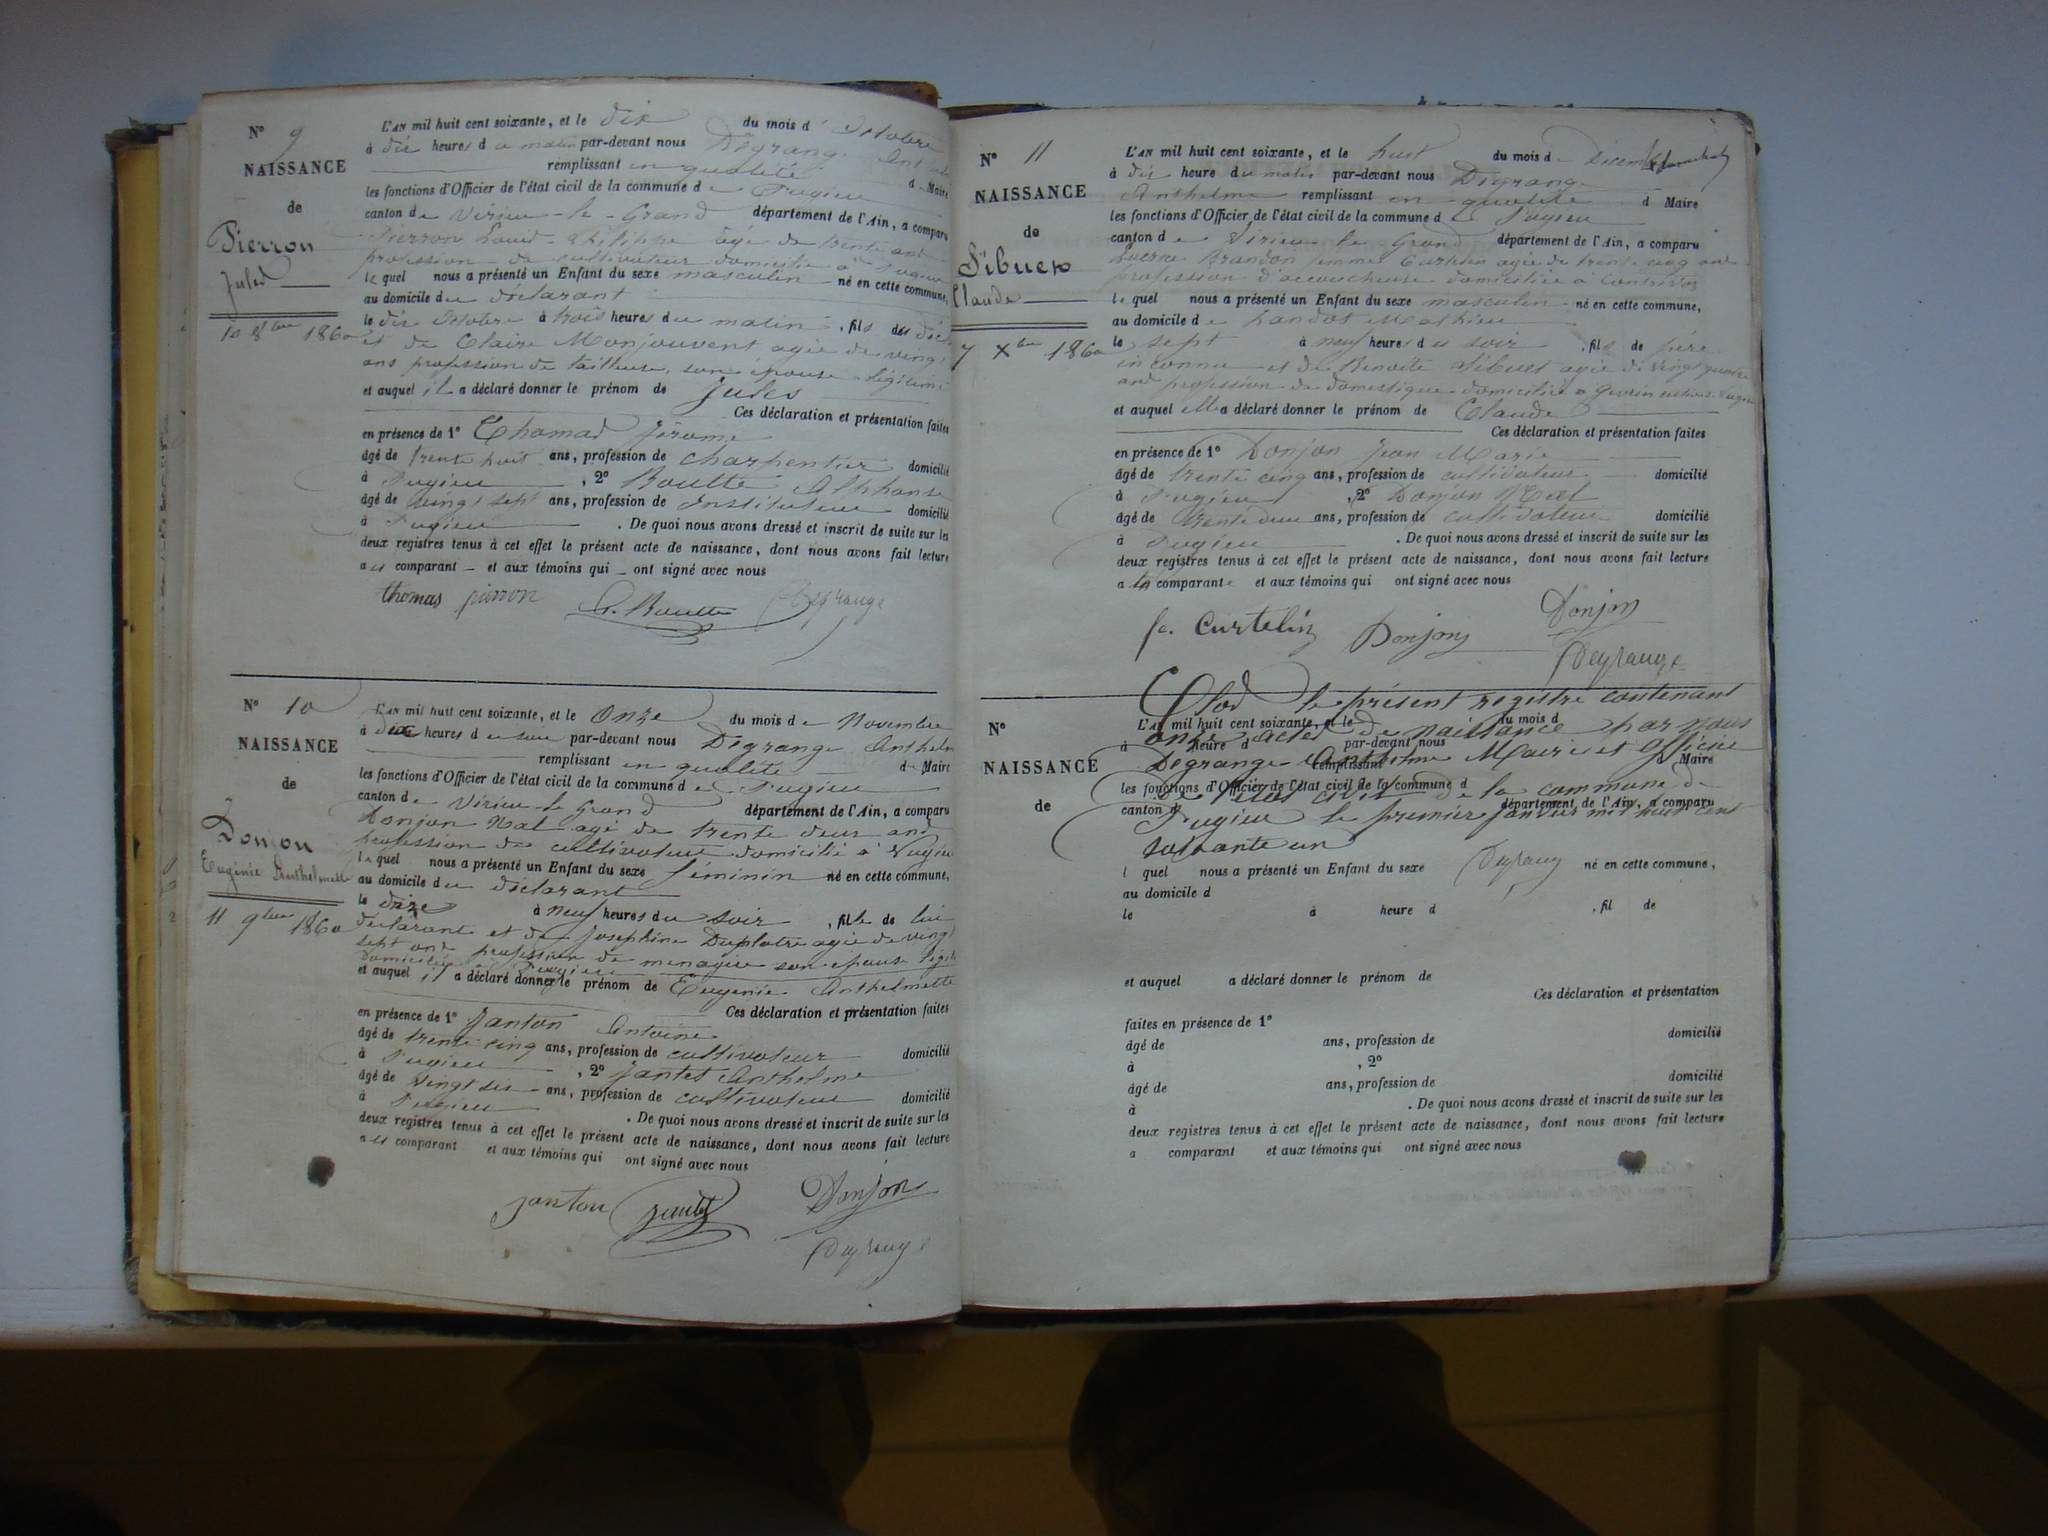 N° 9
NAISSANCE
de
Pierron
Jules
10 8bre 1860
L'AN mil huit cent soixante, et le dix du mois d'Octobre
à dix heures du matin par-devant nous Degrange
remplissant en qualité de Maire
les fonctions d'Officier de l'état civil de la commune de Pugieu
canton de Virieu-le-Grand département de l'Ain, a comparu
Pierron Louis-Philippe âgé de trente ans
profession de cultivateur domicilié à Pugieu
lequel nous a présenté un Enfant du sexe masculin né en cette commune,
au domicile du déclarant
le dix Octobre à trois heures du matin, fils des
et de Claire Monjouvent agée de vingt
ans profession de tailleuse, son épouse légitime
et auquel il a déclaré donner le prénom de Jules
Ces déclaration et présentation faites
en présence de 1° Thomas Jérome
âgé de trente huit ans, profession de charpentier domicilié
à Pugieu, 2° Boutte Alphonse
âgé de vingt sept ans, profession de Instituteur domicilié
à Pugieu. De quoi nous avons dressé et inscrit de suite sur les
deux registres tenus à cet effet le présent acte de naissance, dont nous avons fait lecture
au comparant et aux témoins qui ont signé avec nous
thomas pierron A. Boutte Degrange
N° 10
NAISSANCE
de
Donjon
Eugénie Anthelmette
11 9bre 1860
L'AN mil huit cent soixante, et le onze du mois de Novembre
à heures du soir par-devant nous Degrange Anthelm
remplissant en qualité de Maire
les fonctions d'Officier de l'état civil de la commune de Pugieu
canton de Virieu-le-Grand département de l'Ain, a comparu
Donjon Noel agé de trente deux ans
profession de cultivateur domicilié à Pugieu
lequel nous a présenté un Enfant du sexe féminin né en cette commune,
au domicile du déclarant
le à neuf heures du soir, fille de lui
déclarant et de Josephine Duplatre agée de vingt
sept ans profession de menagère son épouse
domiciliée à Pugieu
et auquel il a déclaré donner le prénom de Eugenie Anthelmette
Ces déclaration et présentation faites
en présence de 1° Janton Antoine
âgé de trente cinq ans, profession de cultivateur domicilié
à Pugieu, 2° Jantet Anthelme
âgé de vingt six ans, profession de cultivateur domicilié
à Pugieu. De quoi nous avons dressé et inscrit de suite sur les
deux registres tenus à cet effet le présent acte de naissance, dont nous avons fait lecture
au comparant et aux témoins qui ont signé avec nous
janton jantet Donjon
Degrange
N° 11
NAISSANCE
de
Sibuet
Claude
7 Xbre 1860
L'AN mil huit cent soixante, et le huit du mois de Décembre
à dix heure du matin par-devant nous Degrange
Anthelme remplissant en qualité d Maire
les fonctions d'Officier de l'état civil de la commune de Pugieu
canton de Virieu le Grand département de l'Ain, a comparu
Brandon femme Curtelin agée de trente cinq ans
profession d'accoucheuse domiciliée à Contrevoz
lequel nous a présenté un Enfant du sexe masculin né en cette commune,
au domicile de Landot Mathieu
le sept à neuf heures du soir, fils de père
inconnu et de Benoite Sibuet agée de vingt quatre
ans profession de domestique domiciliée à
et auquel elle a déclaré donner le prénom de Claude
Ces déclaration et présentation faites
en présence de 1° Donjon Jean Marie
âgé de trente cinq ans, profession de cultivateur domicilié
à Pugieu, 2° Donjon Noel
âgé de trente deux ans, profession de cultivateur domicilié
à Pugieu. De quoi nous avons dressé et inscrit de suite sur les
deux registres tenus à cet effet le présent acte de naissance, dont nous avons fait lecture
a la comparante et aux témoins qui ont signé avec nous
fe. Curtelin Donjon Donjon
Degrange
N°
NAISSANCE
de
Clos le présent registre contenant
L'AN mil huit cent soixante, et le du mois d
onze actes de naissance par nous
à heure d par-devant nous
Degrange Anthelme Maire et officier
remplissant Maire
les fonctions d'Officier de l'état civil de la commune d
de l'état civil de la commune de
canton d département de l'Ain, a comparu
Pugieu le premier janvier mil huit cent
soixante un
Degrange
l quel nous a présenté un Enfant du sexe né en cette commune,
au domicile d
le à heure d, fil de
et auquel a déclaré donner le prénom de
Ces déclaration et présentation
faites en présence de 1°
âgé de ans, profession de domicilié
à, 2°
âgé de ans, profession de domicilié
à. De quoi nous avons dressé et inscrit de suite sur les
deux registres tenus à cet effet le présent acte de naissance, dont nous avons fait lecture
a comparant et aux témoins qui ont signé avec nous